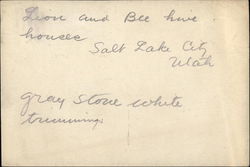 Lion and Bee hive
houses
Salt Lake City
Utah
gray stone white
trimmings